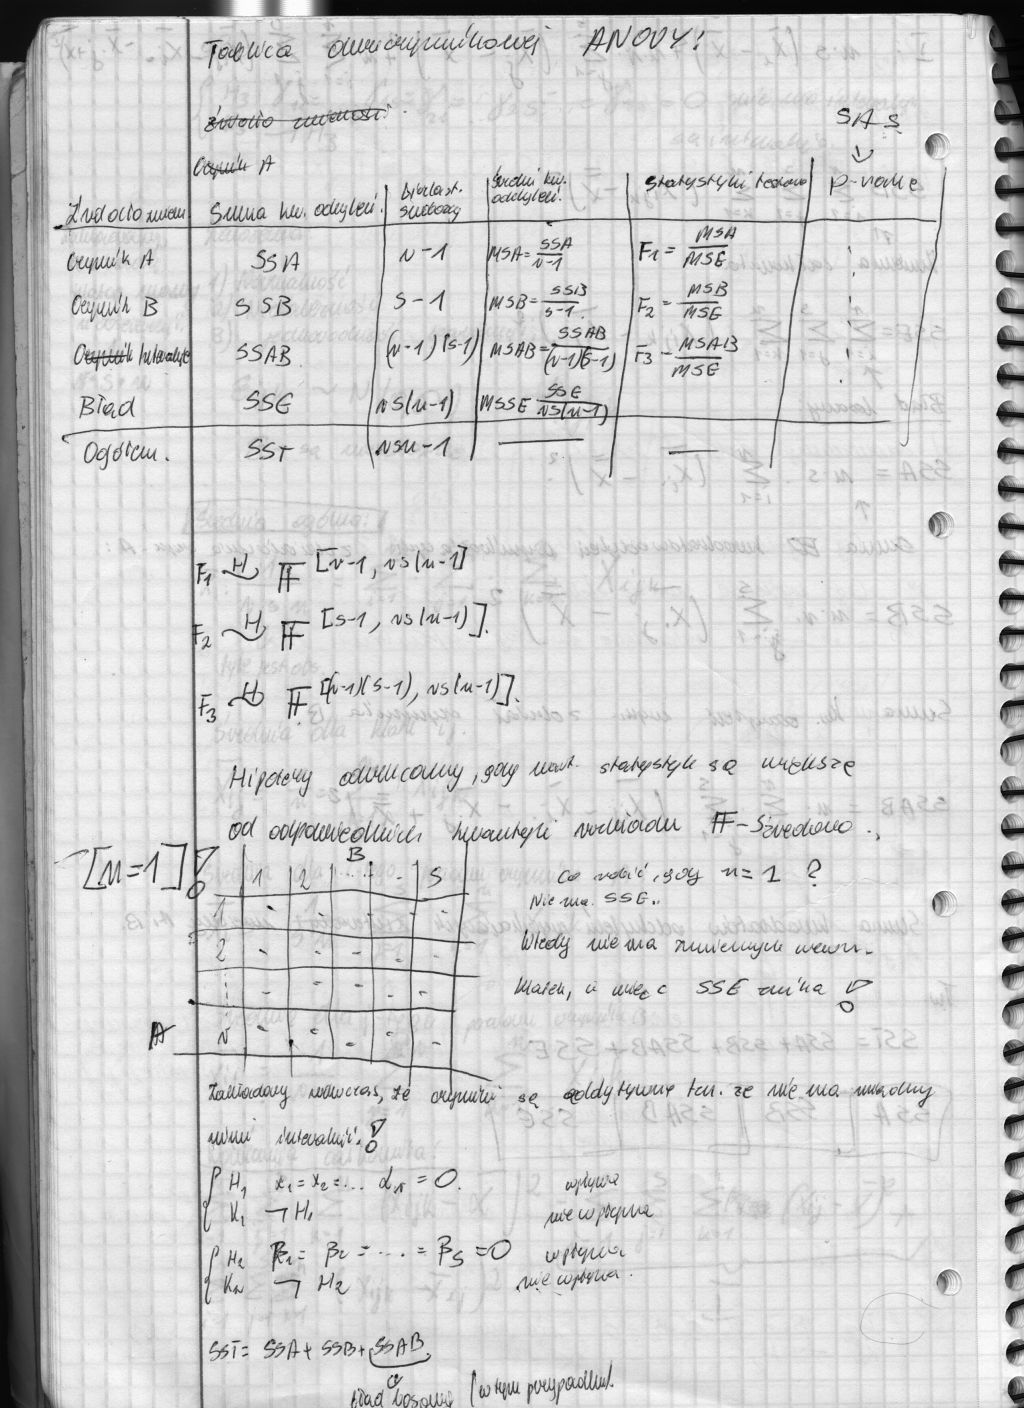 Tablica dwuczynnikowej ANOVY!
źródło zmienności
SAS
Czynnik A
Źródło zmien. Suma kw. odchyleń. Liczba st. swobody Średni kw. odchyleń. statystyki testowe p-value
Czynnik A SSA r-1 MSA = SSA/r-1 F1 = MSA/MSE
Czynnik B SSB s-1 MSB = SSB/s-1. F2 = MSB/MSE
Czynnik Interakcje SSAB (r-1)(s-1) MSAB = SSAB/(r-1)(s-1) F3 - MSAB/MSE
Błąd SSE rs(n-1) MSSE SSE/rs(n-1)
Ogółem. SST rsn-1
F1 H~ F [r-1, rs(n-1]
F2 H~ F [s-1, rs(n-1)].
F3 H~ F [(r-1)(s-1), rs(n-1)].
Hipotezy odrzucamy, gdy wart. statystyk są większe
od odpowiednich kwantyli rozkładu F-Snedecora.
[n=1]!
B
1 2 ... . s
1
2
A r
Co robić, gdy n=1 ?
Nie ma SSE..
Wtedy nie ma zmiennych wewn.
klatek, a więc SSE znika !
Zakładamy wówczas, że czynniki są addytywne tzn. że nie ma między
nimi interakcji.!
{ H1 α1=α2=... αr=0. wpływa
{ K1 ¬H1 nie wpływa
{ H2 β1= β2 = ... = βs =0 wpływa
{ K2 ¬ H2 nie wpływa.
SST= SSA+ SSB+ SSAB.
błąd losowy (w tym przypadku).